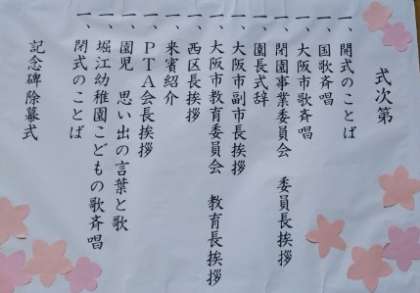 式次第
一、開式のことば
一、国歌斉唱
一、大阪市歌斉唱
一、閉園事業委員会　委員長挨拶
一、園長式辞
一、大阪市副市長挨拶
一、大阪市教育委員会　教育長挨拶
一、西区長挨拶
一、来賓紹介
一、ＰＴＡ会長挨拶
一、園児　思い出の言葉と歌
一、堀江幼稚園こどもの歌斉唱
一、閉式のことば
記念碑除幕式